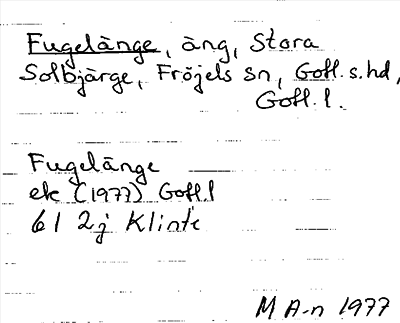 Fugelänge, äng, Stora
Solbjärge, Fröjels sn, Gotl. s. hd,
Gotl. l.
Fugelänge
ek (1977) Gotl. l
6 I 2j Klinte
M A-n 1977